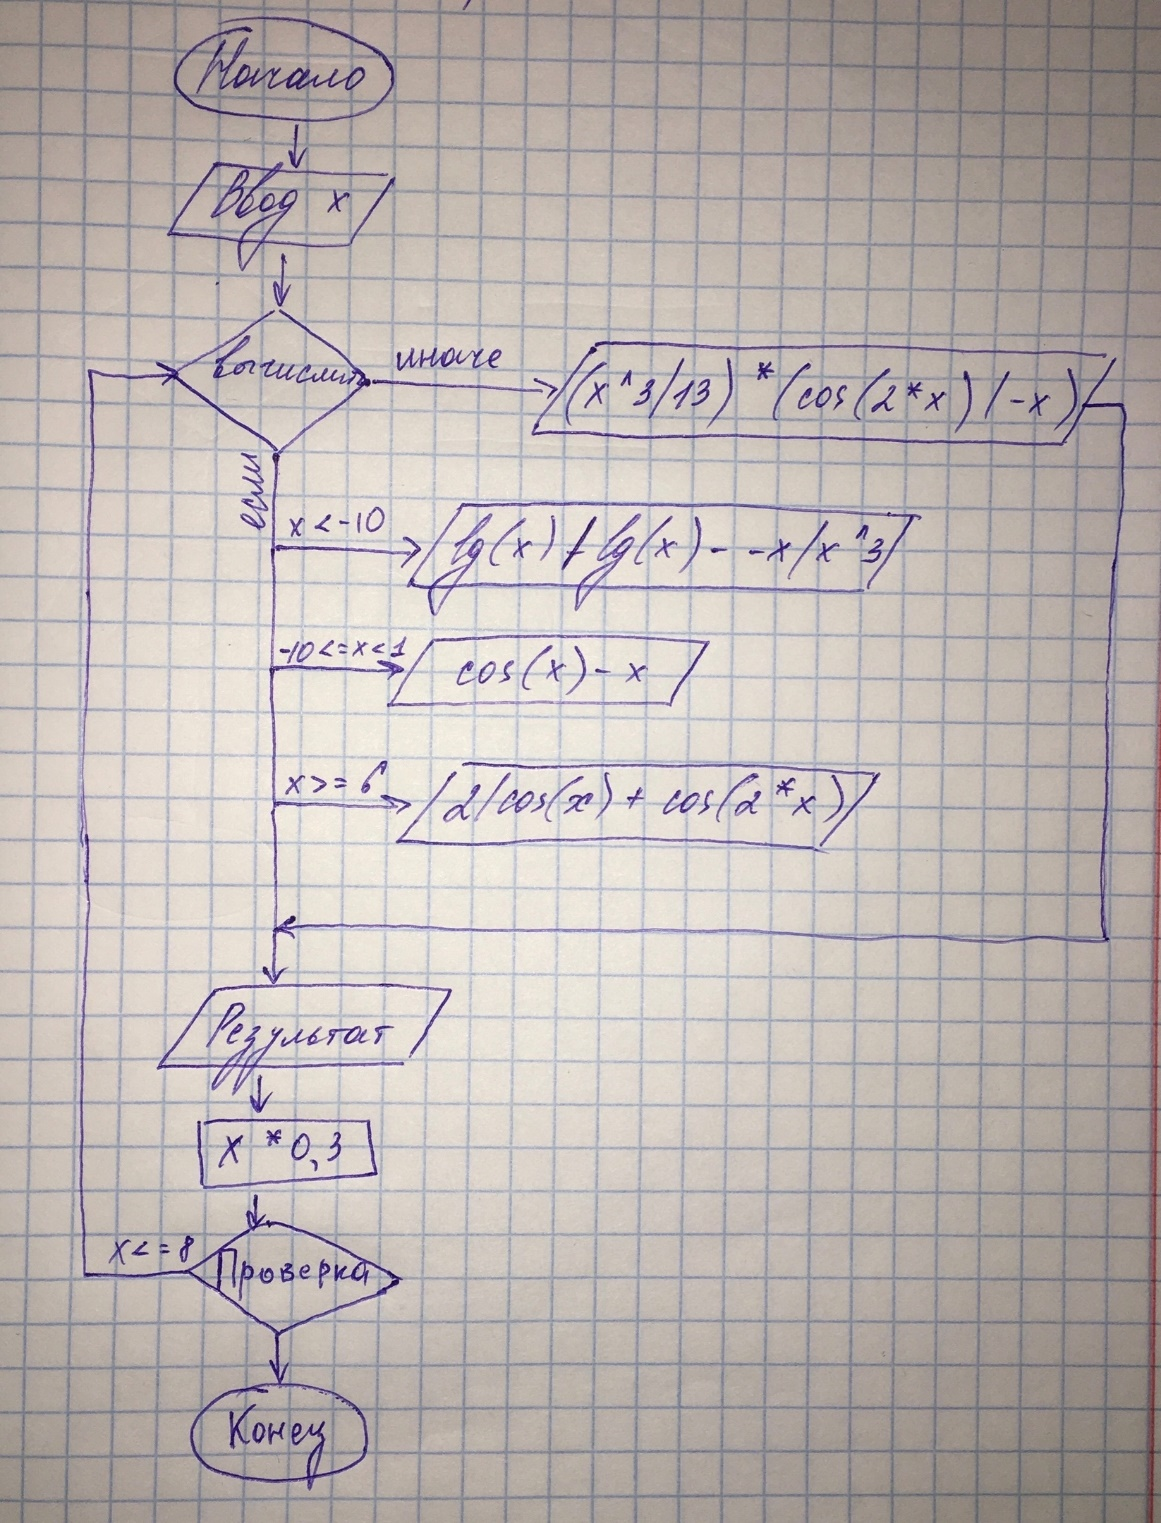 Начало
Ввод x
вычислить
иначе
(x^3/13)*(cos(2*x)/-x)
если
x<-10
lg(x)/lg(x)--x/x^3
-10<=x<1
cos(x)-x
x>=6
2/cos(x)+cos(2*x)
Результат
X*0,3
x<=8
Проверка
Конец